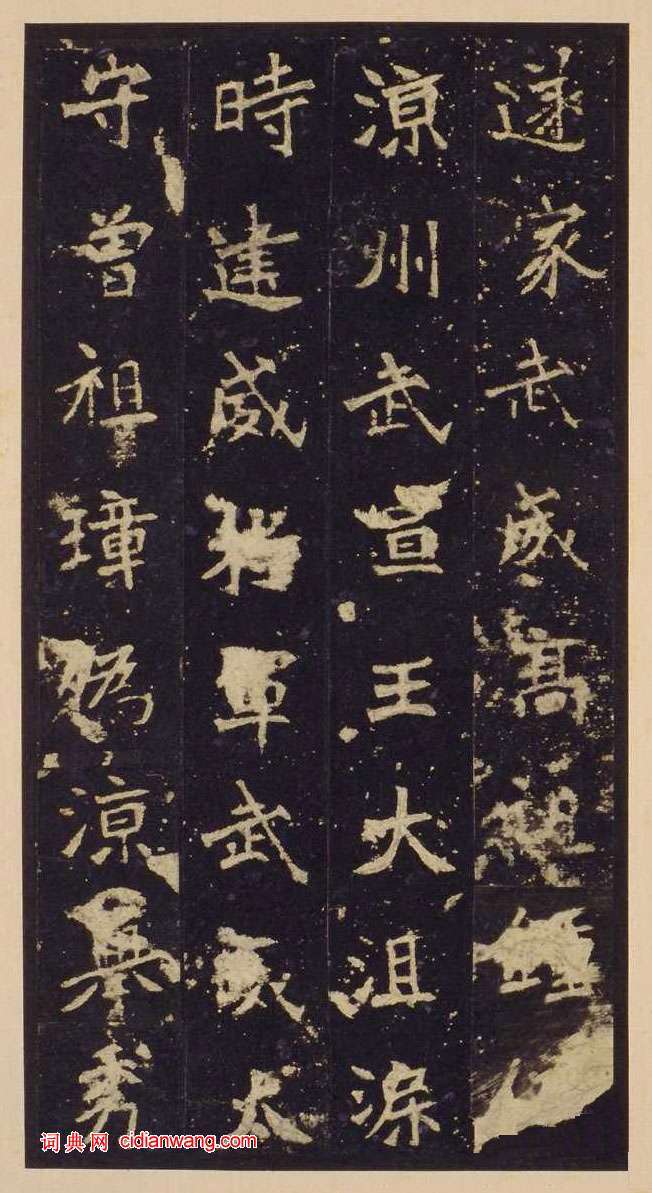 遂家武威高祖鍾
涼州武宣王大沮渠
時建威將軍武威太
守曾祖璋偽涼舉秀
词典网 cidianwang.com